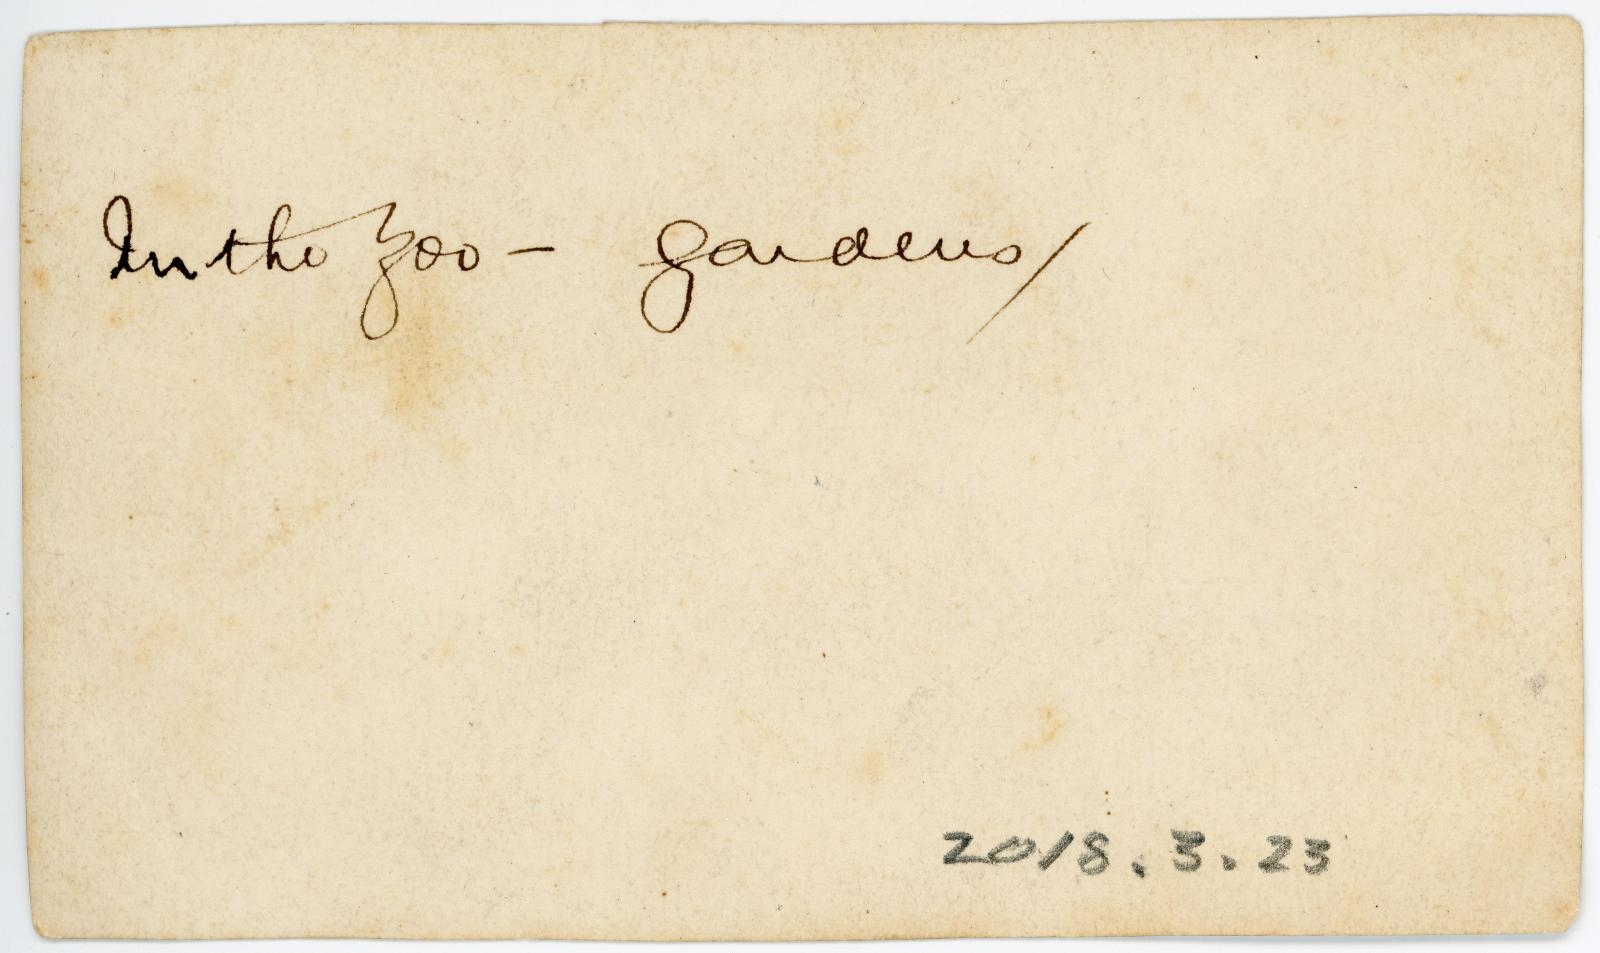 In the Zoo - gardens/
2018.3.23